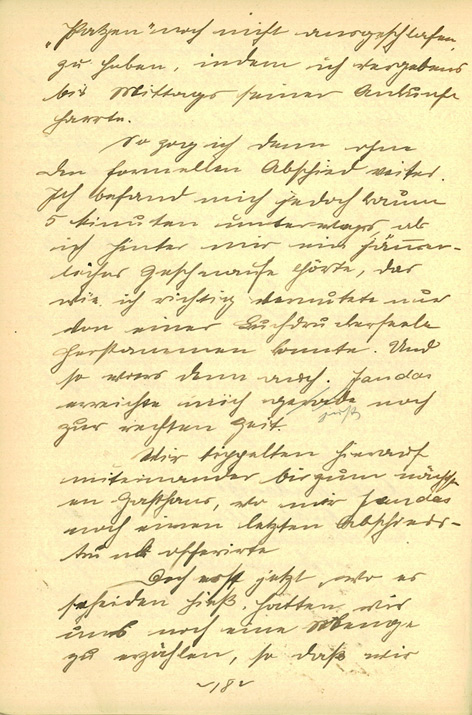 „Patzen" noch nicht ausgeschlafen
zu haben, indem ich vergebens
bis Mittags seiner Ankunft
harrte.
So zog ich denn ohne
den formellen Abschied weiter.
Ich befand mich jedoch kaum
5 Minuten unterwegs, als
ich hinter mir ein jämmer-
liches Geschnaufe hörte, das
wie ich richtig vermutete nur
von einer Buchdruckerseele
herstammen konnte. Und
so wars denn auch. Jandas
erreichte mich gerade noch
zur rechten Zeit.
Wir tippelten hierauf
miteinander bis zum nächst-
en Gasthaus, wo mir Jandas
noch einen letzten Abschieds-
trunk offerirte
Doch erst jetzt, wo es
scheiden hieß, hatten wir
uns noch eine Menge
zu erzählen, so daß wir
~18~